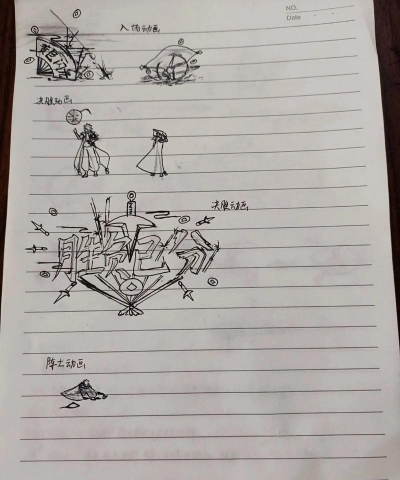 NO.
Date
入场动画
决胜动画
决胜动画
胜负已分
阵亡动画